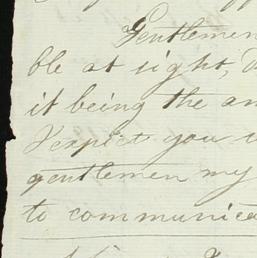 Gentlemen
ble at sight,
it being the am
I expect you
gentlemen my
to communica